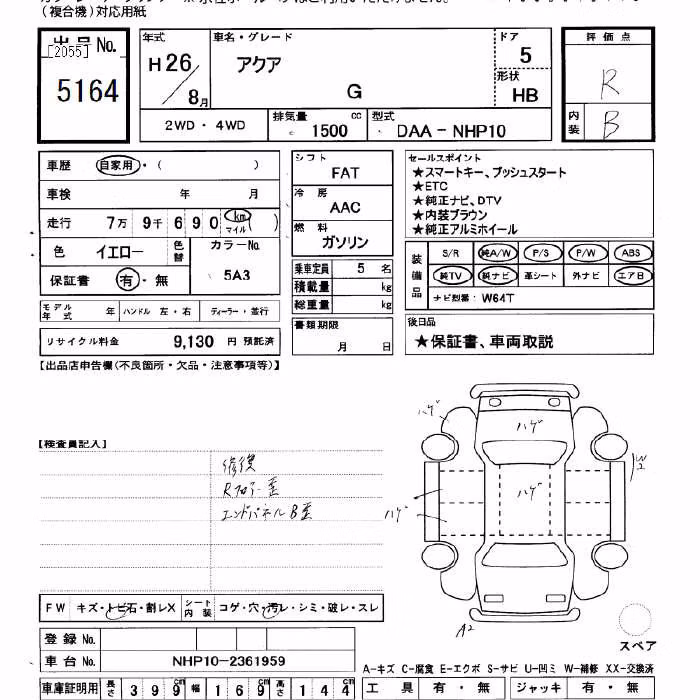 (複合機)対応用紙
出品No.
[2055]
5164
年式
H26/8月
車名・グレード
アクア
G
ドア
5
形状
HB
2WD・4WD
排気量
cc
1500
型式
DAA-NHP10
評価点
R
内装
B
車歴 自家用・( )
車検 年 月
走行 7万 9千 6 9 0 km マイル ( )
色 イエロー 色替
カラーNo.
5A3
保証書 有・無
モデル年式 年 ハンドル 左・右 ディーラー・並行
リサイクル料金 9,130 円 預託済
シフト
FAT
冷房
AAC
燃料
ガソリン
乗車定員 5 名
積載量 kg
総重量 kg
書類期限
月 日
セールスポイント
★スマートキー、プッシュスタート
★ETC
★純正ナビ、DTV
★内装ブラウン
★純正アルミホイール
装備品
S/R 純A/W P/S P/W ABS
純TV 純ナビ 革シート 外ナビ エアB
ナビ型番: W64T
後日品
★保証書、車両取説
【出品店申告欄(不良箇所・欠品・注意事項等)】
【検査員記入】
修復
Rフロアー歪
エンドパネルB歪
ハゲ
ハゲ
ハゲ
ハゲ
W2
A2
スペア
FW キズ・トビ石・割レX
シート内装 コゲ・穴・汚レ・シミ・破レ・スレ
登録No.
車台No. NHP10-2361959
車庫証明用 長さ 399cm 幅 169cm 高さ 144cm
A-キズ C-腐食 E-エクボ S-サビ U-凹ミ W-補修 XX-交換済
工具 有・無 ジャッキ 有・無